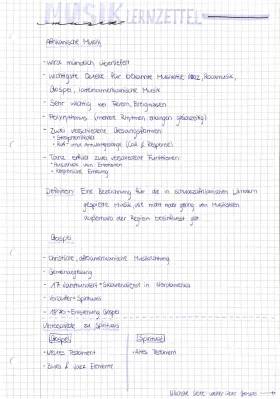 MUSIK LERNZETTEL
Musik
Afrikanische Musik
- wird mündlich überliefert
- wichtigste Quelle für bekannte Musikstile: Jazz, Rockmusik,
Gospel, lateinamerikanische Musik
- Sehr wichtig bei Feiern, Ereignissen
- Polyrhythmus (mehrere Rhythmen erklingen gleichzeitig)
- Zwei verschiedene Gesangsformen
• Ruf- und Antwortgesänge (Call & Response)
- Tanz erfüllt zwei verschiedene Funktionen:
• Ausdruck von Emotionen
• Körperliche
Definition: Eine Bezeichnung für die in schwarzafrikanischen Ländern
gespielte Musik, die nicht oder gering von Musikstilen
außerhalb der Region beeinflusst ist.
Gospel
- Christliche, afroamerikanische Musikrichtung
- Gemeindegesang
- 17. Jahrhundert: Sklavendienst in Nordamerika
- Vorläufer: Spirituals
- 1920: Entstehung Gospel
Unterschiede zu Spirituals
Gospel
Spiritual
- Neues Testament
- Altes Testament
- Blues & Jazz Elemente
Nächste Seite weiter über Gospels →